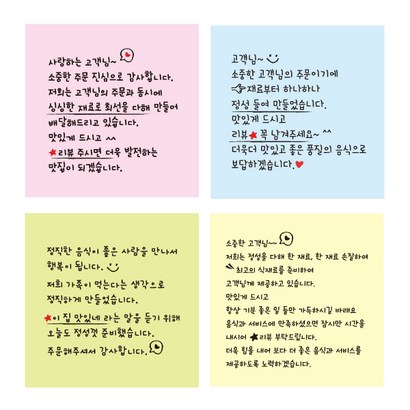 사랑하는 고객님~
소중한 주문 진심으로 감사합니다.
저희는 고객님의 주문과 동시에
싱싱한 재료로 최선을 다해 만들어
배달해드리고 있습니다.
맛있게 드시고 ^^
★리뷰 주시면 더욱 발전하는
맛집이 되겠습니다.
고객님~
소중한 고객님의 주문이기에
재료부터 하나하나
정성 들여 만들었습니다.
맛있게 드시고
리뷰★ 꼭 남겨주세요~ ^^
더욱더 맛있고 좋은 품질의 음식으로
보답하겠습니다.♥
정직한 음식이 좋은 사람을 만나서
행복이 됩니다.
저희 가족이 먹는다는 생각으로
정직하게 만들었습니다.
★이 집 맛있네 라는 말을 듣기 위해
오늘도 정성껏 준비했습니다.
주문해주셔서 감사합니다.
소중한 고객님~
저희는 정성을 다해 한 재료, 한 재료 손질하여
최고의 식재료를 준비하여
고객님게 제공하고 있습니다.
맛있게 드시고
항상 기분 좋은 일 들만 가득하시길 바래요
음식과 서비스에 만족하셨으면 잠시만 시간을
내시어 ★리뷰 부탁드립니다.
더욱 힘을 내어 보다 더 좋은 음식과 서비스를
제공하도록 노력하겠습니다.